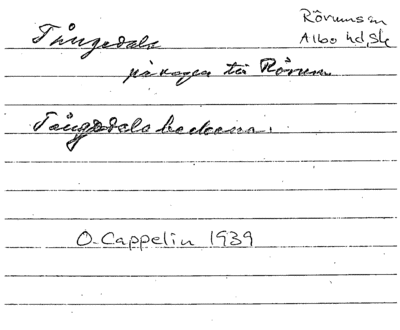 Rörums sn
Albo hd, Sk
Tångdala
på vägen till Rörum
Tångdala backarna.
O. Cappelin 1939